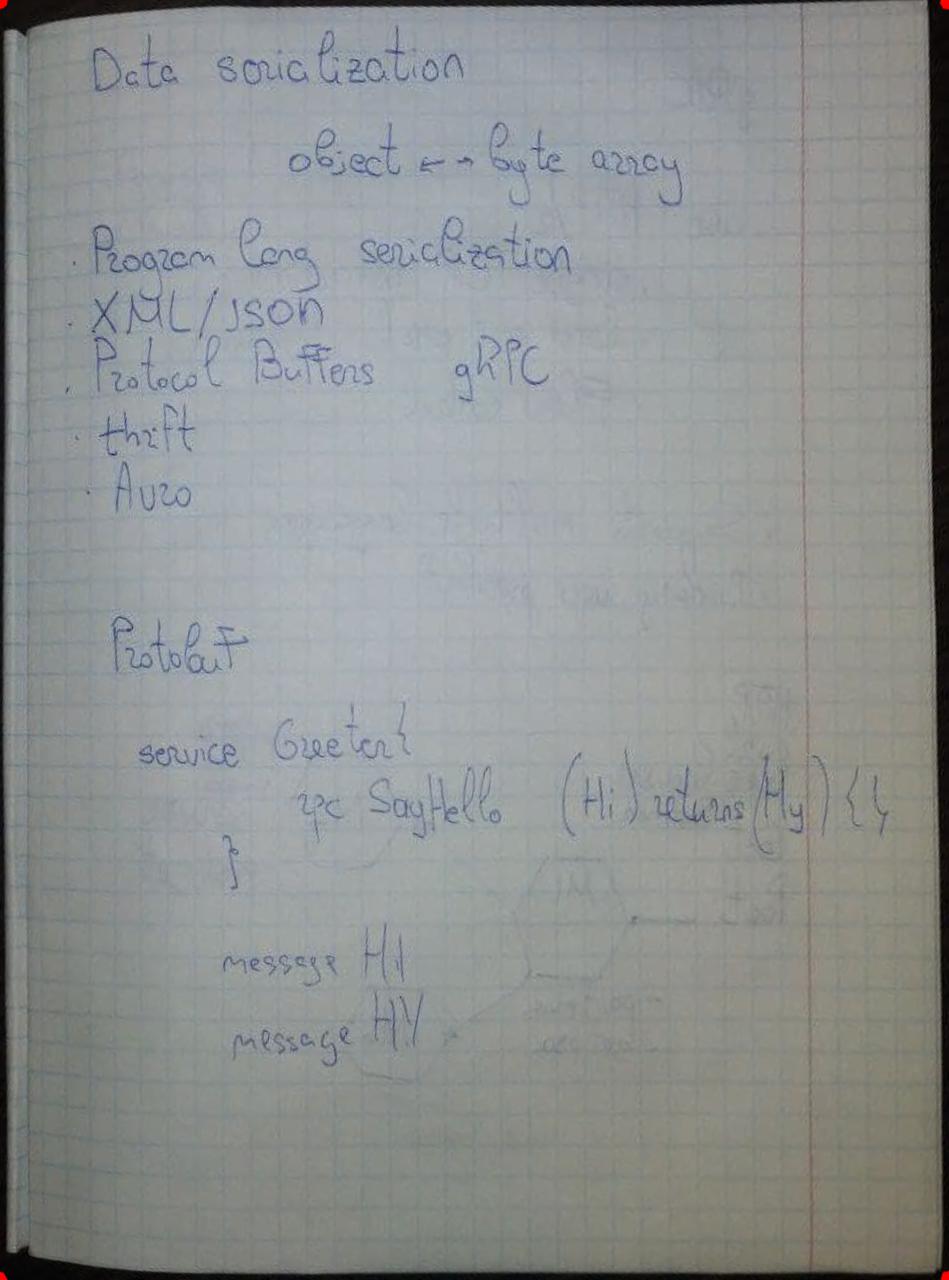 Data serialization
object ← → byte array
· Program lang serialization
· XML/JSON
· Protocol Buffers gRPC
· thrift
· Avro
Protobuf
service Greeter {
rpc SayHello (Hi) returns (Hy) { }
}
message Hi
message HY